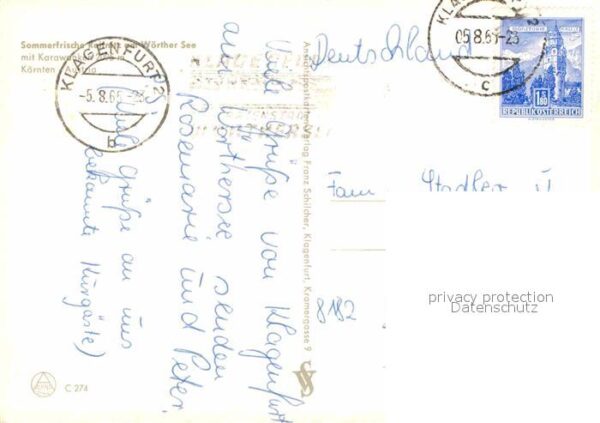 Sommerfrische am Wörther See
mit
Kärnten
KLAGENFURT 2
-5.8.65
b
Viele Grüße von Klagenfurt
am Wörthersee senden
Rosemarie und Peter.
PS
Viele Grüße an uns
bekannte Kurgäste)
Ansichtspostkarten-Verlag Franz Schilcher, Klagenfurt, Kramergasse 9
Deutschland
05.8.65
c
1.80
REPUBLIK ÖSTERREICH
Fam. Stadler u
8182
privacy protection
Datenschutz
C 274